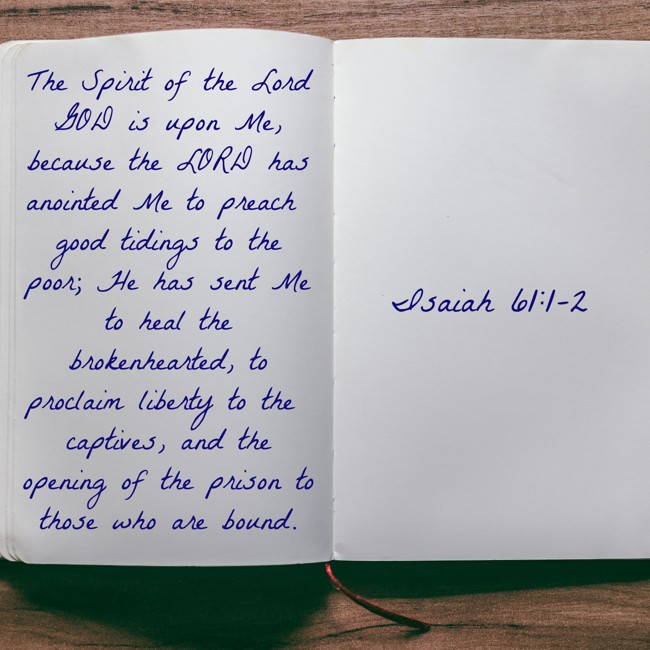 The Spirit of the Lord
GOD is upon Me,
because the LORD has
anointed Me to preach
good tidings to the
poor; He has sent Me
to heal the
brokenhearted, to
proclaim liberty to the
captives, and the
opening of the prison to
those who are bound.
Isaiah 61:1-2